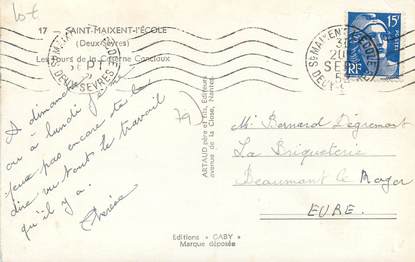 10€
17 - SAINT-MAIXENT-l'ÉCOLE
(Deux-Sèvres)
Les Tours de la Caserne Canclaux
St MAIXENT L'ECOLE
SEPT
DEUX SEVRES
St MAIXENT L'ECOLE
20
SEPT
DEUX SEVRES
15F
RF
A dimanche
ou à lundi je
peux pas encore te le
dire vu tout le travail
qu'il y a.
Thérèse
79
ARTAUD père et fils, Éditeurs
avenue de la Close, Nantes
Mr Bernard Dégremont
La Briqueterie
Beaumont le Roger
EURE.
Editions "GABY"
Marque déposée